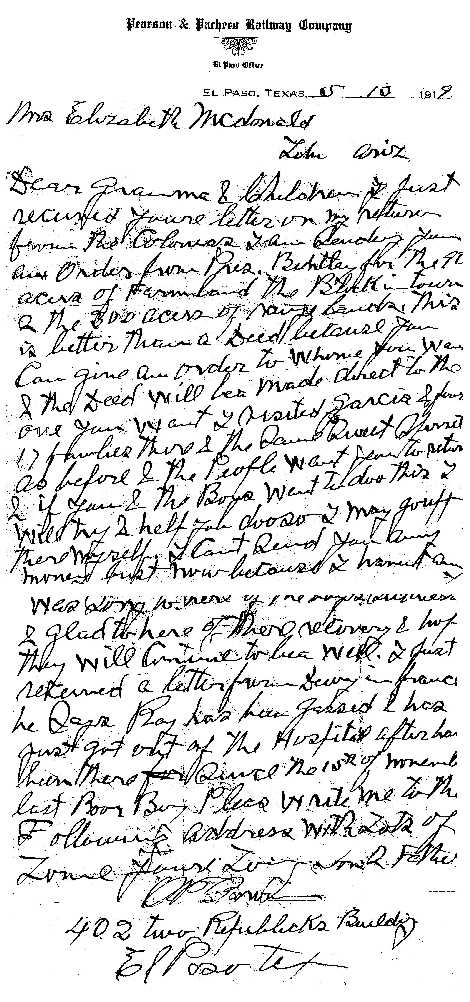 Pearson & Pachres Railway Company
El Paso Office
EL PASO, TEXAS, 5 10 1919
Mrs Elizabeth McDonald
Ariz
Dear Gramma & Children I Just
recived youre letter on my return
from the Colonias I am Sending you
an Order from Pres. Bentley for the
acers of Farmland the Block in town
& the 300 acers of range lands. This
is better than a Deed because you
Can give an order to Whome you Want
& the Deed Will bea Made direct to the
one you Want I visited Garcia & found
17 families there & the Same Sweet Spirit
as before & the People Want you to return
& if you & the Boys Want to do this I
Will try & help you do so I may go
there myself, I Cant Send you any
money Just Now because I havent any
Was Sorry to here of the boys sickness
& glad to here of There recovery & hope
they will Continue to bea Well. I Just
recived a letter from Dewy in france
he Says Ray has been gassed & has
Just got out of The Hospital after having
been there Since the 15th of November
last Poor Boy Pleas Write me to the
Following address With Lots of
Love Youre Loving Son & Father
402 two Republicks Building
El Paso Tex